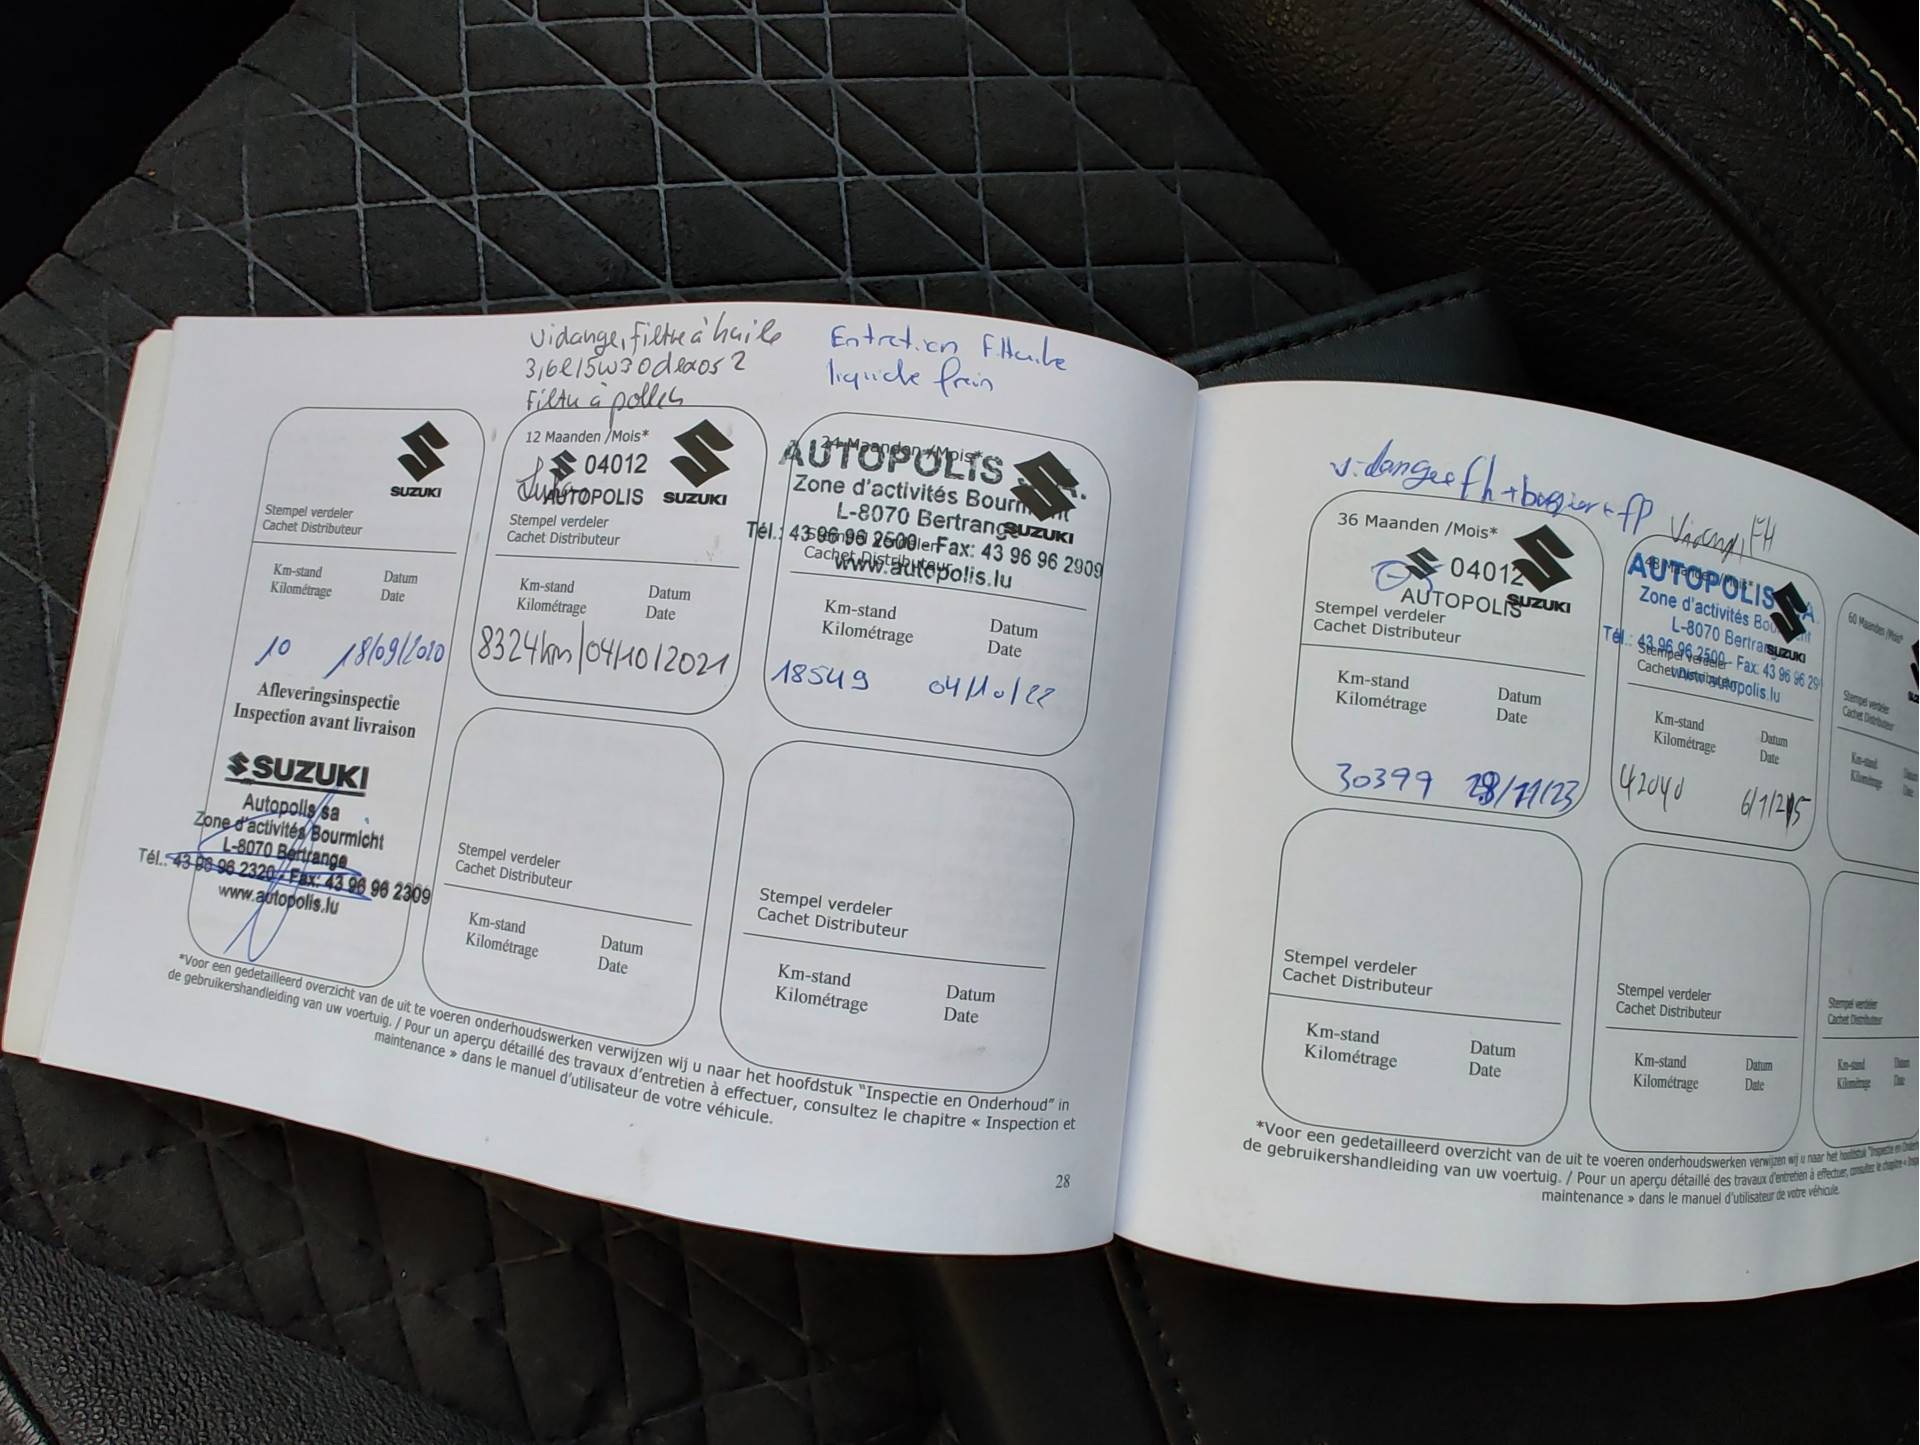 Vidange, Filtre à huile
3,6l 5w30 dexos 2
Filtre à pollen
Entretien F.Huile
liquide frein
SUZUKI
Stempel verdeler
Cachet Distributeur
Km-stand Datum
Kilométrage Date
10 18/09/2020
Afleveringsinspectie
Inspection avant livraison
SUZUKI
Autopolis sa
Zone d'activités Bourmicht
L-8070 Bertrange
Tél.: 43 96 96 2320 - Fax: 43 96 96 2309
www.autopolis.lu
12 Maanden /Mois*
04012
AUTOPOLIS SUZUKI
Stempel verdeler
Cachet Distributeur
Km-stand Datum
Kilométrage Date
8324km/04/10/2021
24 Maanden /Mois*
AUTOPOLIS S.A.
Zone d'activités Bourmicht
L-8070 Bertrange
SUZUKI
Tél.: 43 96 96 2500 - Fax: 43 96 96 2909
Stempel verdeler
Cachet Distributeur
www.autopolis.lu
Km-stand Datum
Kilométrage Date
18549 04/10/22
Stempel verdeler
Cachet Distributeur
Km-stand Datum
Kilométrage Date
Stempel verdeler
Cachet Distributeur
Km-stand Datum
Kilométrage Date
*Voor een gedetailleerd overzicht van de uit te voeren onderhoudswerken verwijzen wij u naar het hoofdstuk "Inspectie en Onderhoud" in
de gebruikershandleiding van uw voertuig. / Pour un aperçu détaillé des travaux d'entretien à effectuer, consultez le chapitre « Inspection et
maintenance » dans le manuel d'utilisateur de votre véhicule.
28
fh + + fp
FH
36 Maanden /Mois*
04012
AUTOPOLIS SUZUKI
Stempel verdeler
Cachet Distributeur
Km-stand Datum
Kilométrage Date
30399 28/11/23
48 Maanden /Mois*
AUTOPOLIS S.A.
Zone d'activités Bourmicht
L-8070 Bertrange
SUZUKI
Tél.: 43 96 96 2500 - Fax: 43 96 96 29
Stempel verdeler
Cachet Distributeur
www.autopolis.lu
Km-stand Datum
Kilométrage Date
42040 6/1/25
60 Maanden /Mois*
Stempel verdeler
Cachet Distributeur
Km-stand Datum
Kilométrage Date
Stempel verdeler
Cachet Distributeur
Km-stand Datum
Kilométrage Date
Stempel verdeler
Cachet Distributeur
Km-stand Datum
Kilométrage Date
Stempel verdeler
Cachet Distributeur
Km-stand Datum
Kilométrage Date
*Voor een gedetailleerd overzicht van de uit te voeren onderhoudswerken verwijzen wij u naar het hoofdstuk "Inspectie en
de gebruikershandleiding van uw voertuig. / Pour un aperçu détaillé des travaux d'entretien à effectuer, consultez le chapitre «
maintenance » dans le manuel d'utilisateur de votre véhicule.